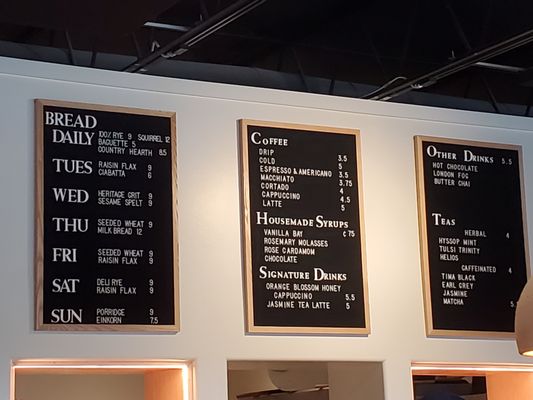 BREAD
DAILY
100% RYE 9 SQUIRREL 12
BAGUETTE 5
COUNTRY HEARTH 8.5
TUES
RAISIN FLAX 9
CIABATTA 6
WED
HERITAGE GRIT 9
SESAME SPELT 9
THU
SEEDED WHEAT 9
MILK BREAD 12
FRI
SEEDED WHEAT 9
RAISIN FLAX 9
SAT
DELI RYE 9
RAISIN FLAX 9
SUN
PORRIDGE 9
EINKORN 7.5
COFFEE
DRIP 3.5
COLD 5
ESPRESSO & AMERICANO 3.5
MACCHIATO 3.75
CORTADO 4
CAPPUCCINO 4.5
LATTE 5
HOUSEMADE SYRUPS
VANILLA BAY ¢75
ROSEMARY MOLASSES
ROSE CARDAMOM
CHOCOLATE
SIGNATURE DRINKS
ORANGE BLOSSOM HONEY
CAPPUCINO 5.5
JASMINE TEA LATTE 5
OTHER DRINKS 5.5
HOT CHOCOLATE
LONDON FOG
BUTTER CHAI
TEAS
HERBAL 4
HYSSOP MINT
TULSI TRINITY
HELIOS
CAFFEINATED 4
TIMA BLACK
EARL GREY
JASMINE
MATCHA 5